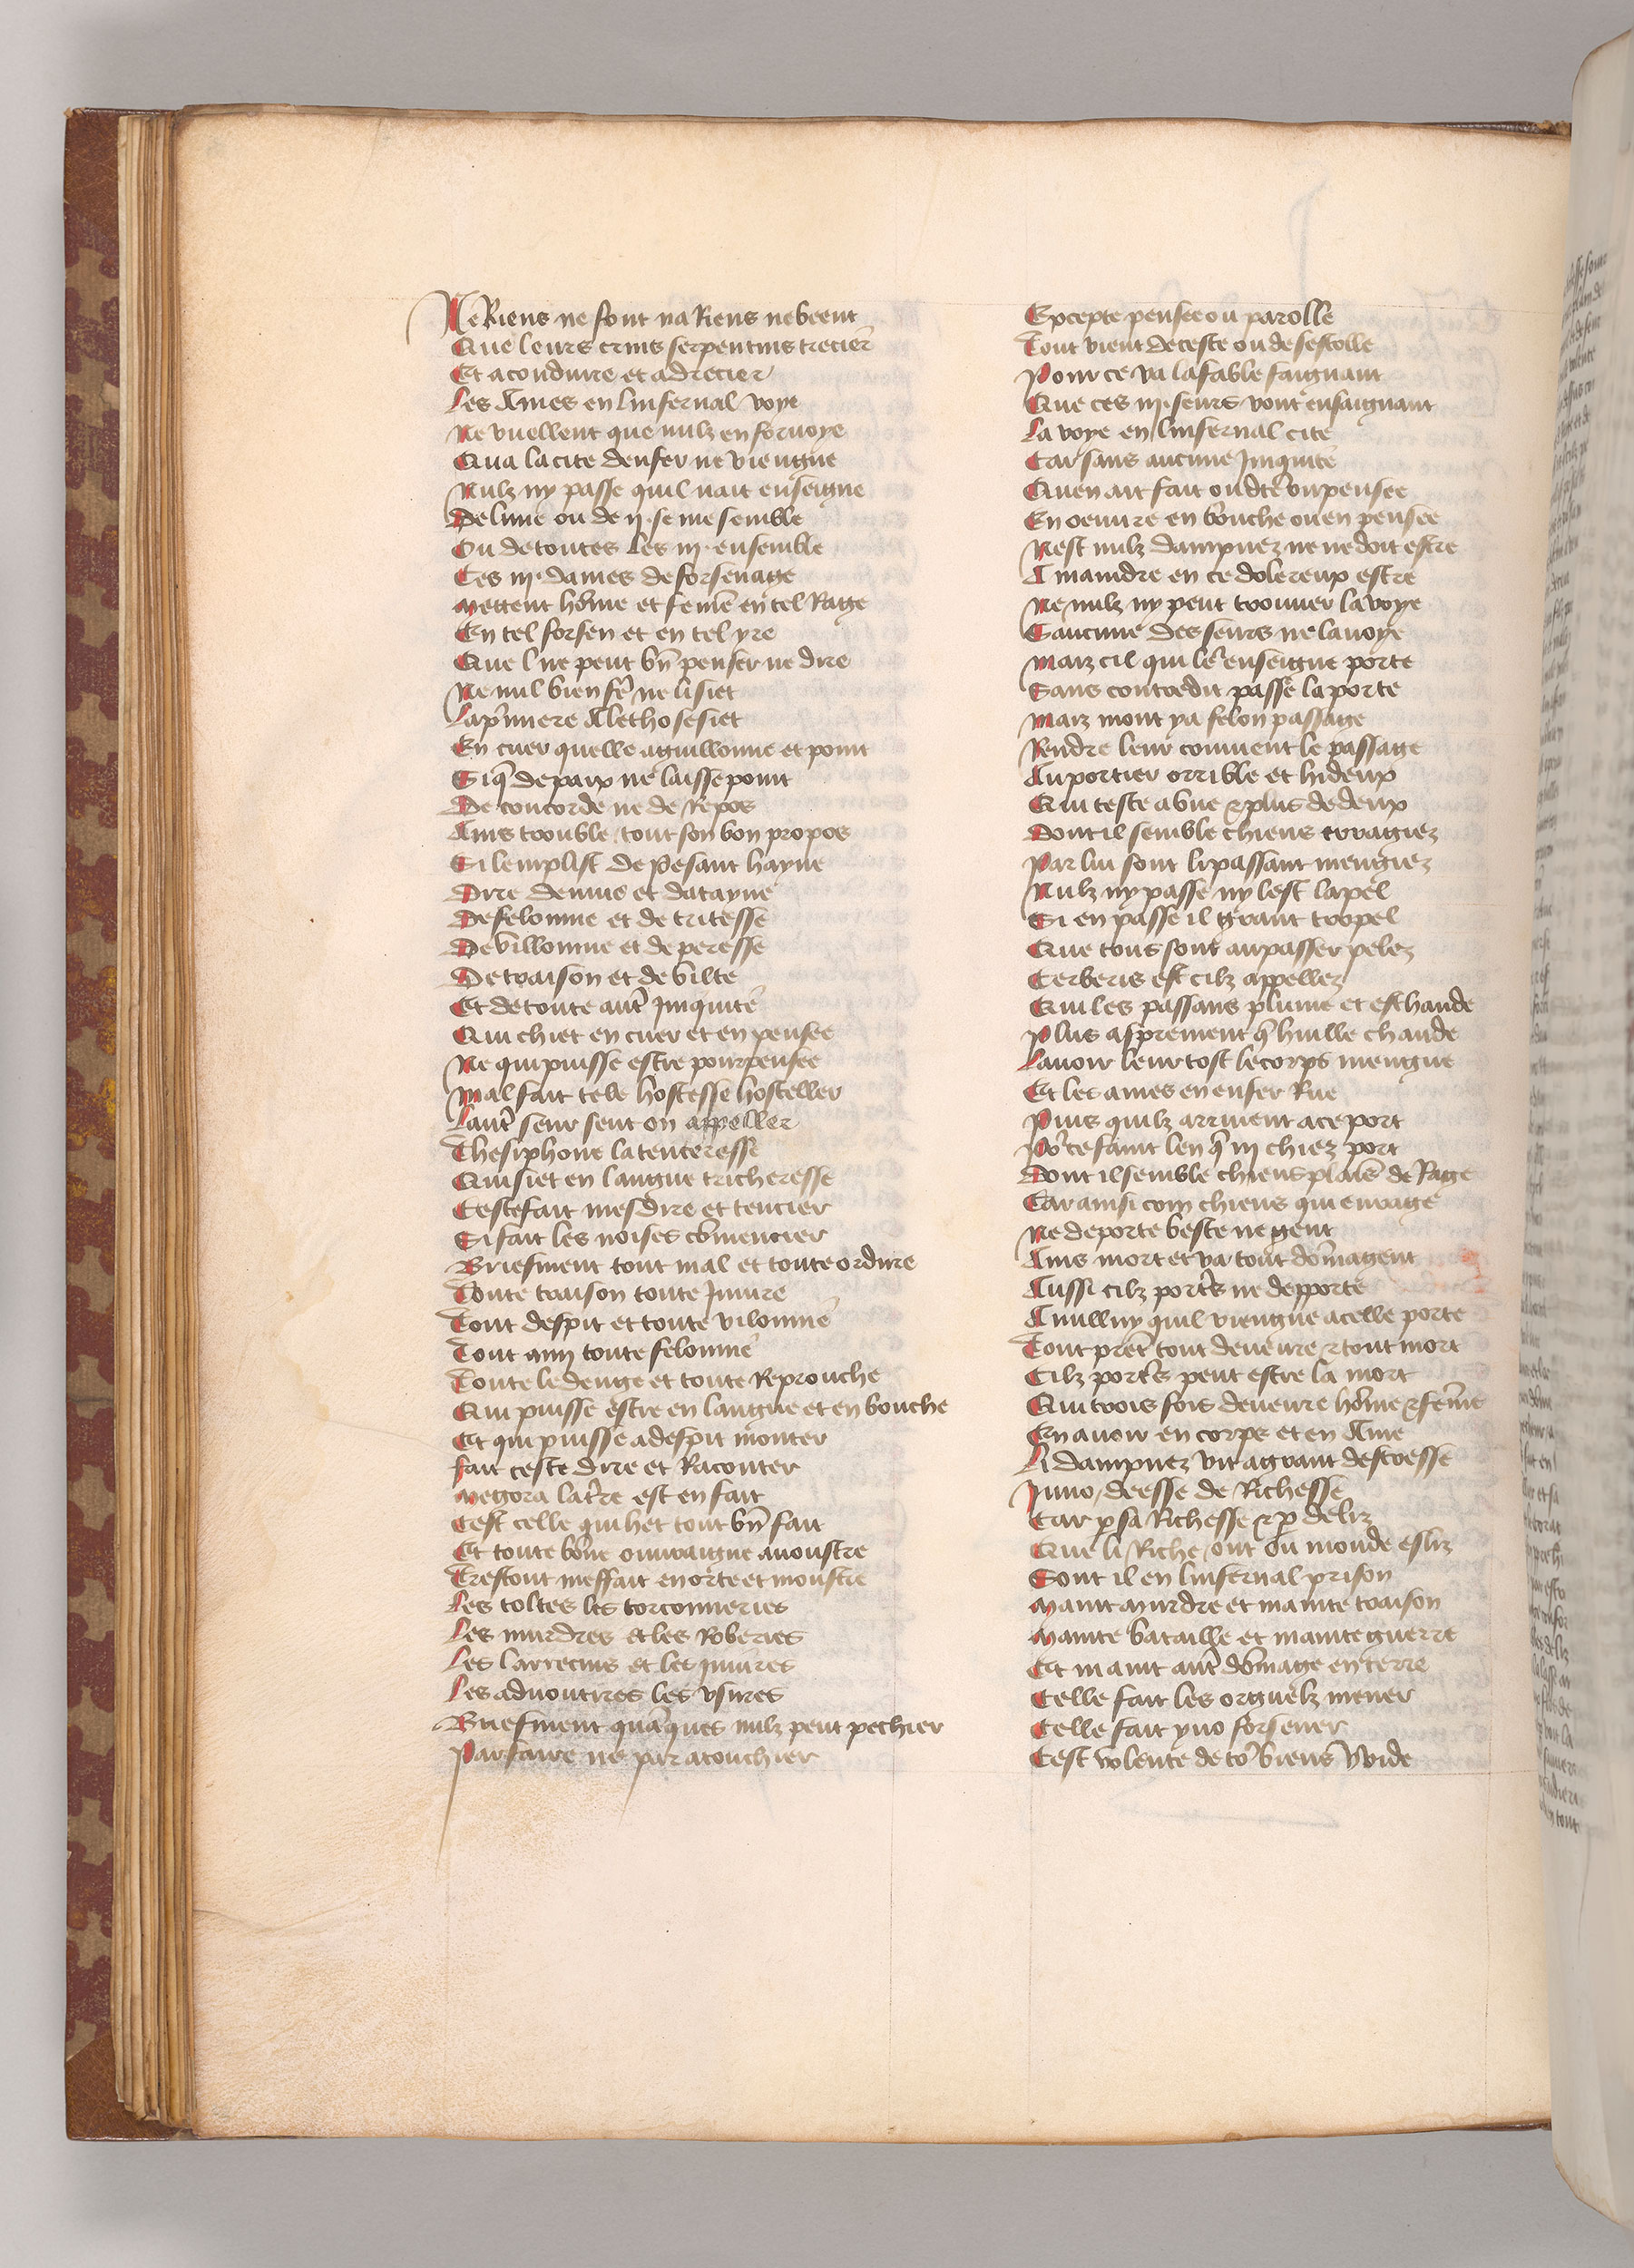 Ne Riens ne font na Riens ne beent
Que leurs crins serpentins trecier
Et a conduire et adrecier
Les Ames en linfernal voye
Ne vuellent que nulz en forvoye
Qua la cite denfer ne viengne
Nulz ny passe quil nait enseigne
De lune ou de ij. se me semble
Ou de toutes les iij. ensemble
Ces iij. dames de forsenage
Mettent hōme et femē en tel Rage
En tel forsen et en tel yre
Que l ne peut bn̄ penser ne dire
Ne nul bien fē ne li siet
La p̄miere Aletho se siet
En cuer quelle aguillonne et point
Si q̄ de paix ne laisse point
De concorde ne de Repos
Ains trouble tout son bon propos
Si lemplist de pesant hayne
Dire denuie et datayne
De felonnie et de tritesse
De villonnie et de peresse
De traison et de vilte
Et de toute aut̄ Iniquite
Qui chiet en cuer et en pensee
Ne qui puisse estre pourpensee
Mal fait tele hostesse hosteller
Laut̄ seur seut on appeller
Thesiphone la tenteresse
Qui siet en langue tricheresse
Ceste fait mesdire et tencier
Si fait les noises cōmencier
Briefment tout mal et toute ordure
Toute traison toute Iniure
Tout despit et toute vilonnie
Tout anny toute felonnie
Toute ledenge et toute Reprouche
Qui puisse estre en langue et en bouche
Et qui puisse a despit monter
fait ceste dire et Raconter
Megora la t̄re est en fait
Cest celle qui het tout bn̄ fait
Et toute bōne ouuraigne auoustre
Trestout meffait enorte et monstre
Les toltes les torconneries
Les murdres et les Roberies
Les larrecins et les Iniures
Les aduoutires les vsures
Briefment quāques nulz peut pechier
Par faire ne par atouchier
Excepte pensee ou parolle
Tout vient de ceste ou de sescolle
Pour ce va la fable faignant
Que ces iij. seurs vont ensaignant
La voye en linfernal cite
Car sans aucune Iniquite
Quen ait fait ou dte ou pensee
En oeuure en bouche ou en pensee
Nest nulz dampnez ne ne doit estre
A maindre en ce dolereux estre
Ne nulz ny peut trouuer la voye
Saucune des seurs ne lauoye
Maiz cil qui le enseigne porte
Sans contredit passe la porte
Maiz mont ya felon passage
Rendre leur conuient le passage
Au portier orrible et hideux
Qui teste a vne & plus de deux
Dont il semble chiens erragiez
Par lui sont li passant mengiez
Nulz ny passe ny lest lapel
Si en passe il grant tropel
Que tous sont au passer pelez
Cerberis est cilz appellez
Qui les passans plume et eschaude
Plus asprement q̄ huille chaude
Lauoir leur tost le corps mengue
Et les ames en enfer Rue
Puis quilz arriuent a ce port
Po ce faint len q̄ iij chiez port
Dont il semble chiens plains de Rage
Car ainsi com chiens qui enrage
Ne deporte beste ne gent
Ains mort et va tout dōmagent
Aussi cilz port̄s ne depporte
A nulluy quil viengne a celle porte
Tout pren̄t tout deueure & tout mort
Cilz port̄s peut estre la mort
Qui trois fois deueure hōme & fēme
En auoir en corps et en Ame
Li dampnez vit a grant destresse
Iuno deesse de Richesse
Car p sa Richesse & p deliz
Que li Riche ont ou monde esliz
Sont il en linfernal prison
Maint murdre et mainte traison
Mainte bataille et mainte guerre
Et maint aut̄ dōmage en terre
Celle fait les orguelz mener
Celle fait yno forsener
Cest volente de to biens vuide